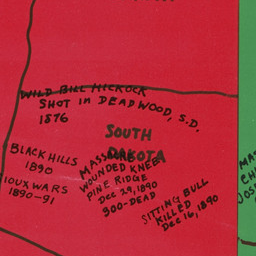 WILD BILL HICKOCK
SHOT in DEADWOOD, S.D.
1876
SOUTH
DAKOTA
BLACK HILLS
1890
SIOUX WARS
1890-91
MASSACRE
WOUNDED KNEE
PINE RIDGE
Dec 29, 1890
300-DEAD
SITTING BULL
KILLED
Dec 16, 1890